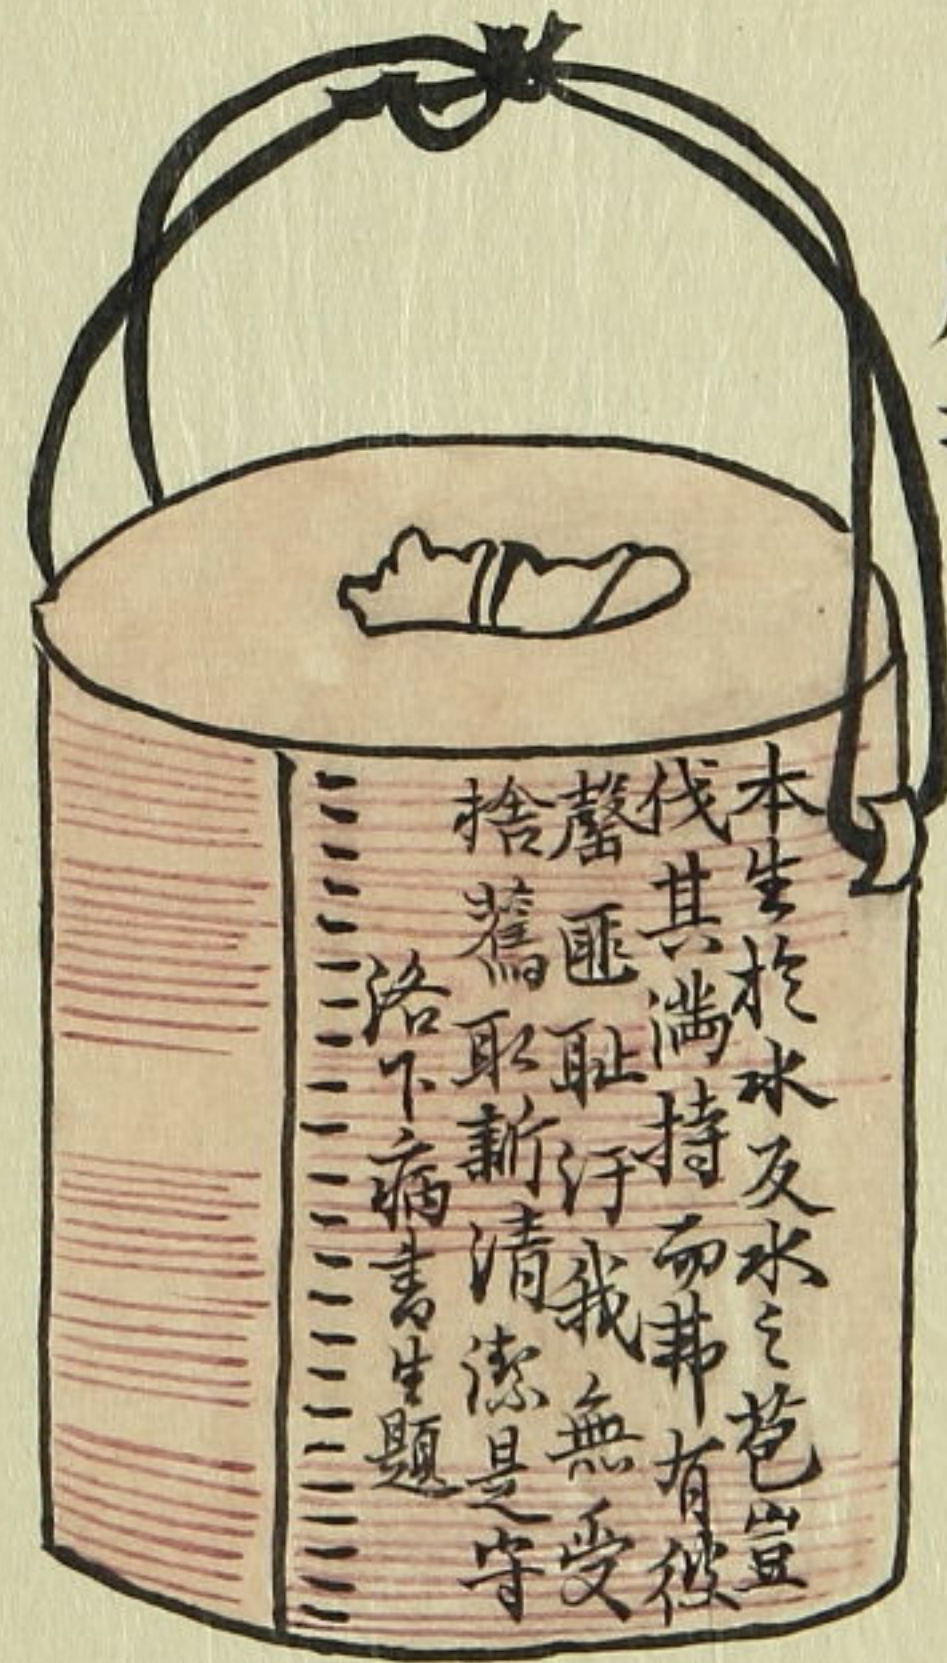 本生於水反水之苞豈
伐其満持而弗有彼
罄匪耻汙我無受
捨舊取新清潔是守
洛下病書生題